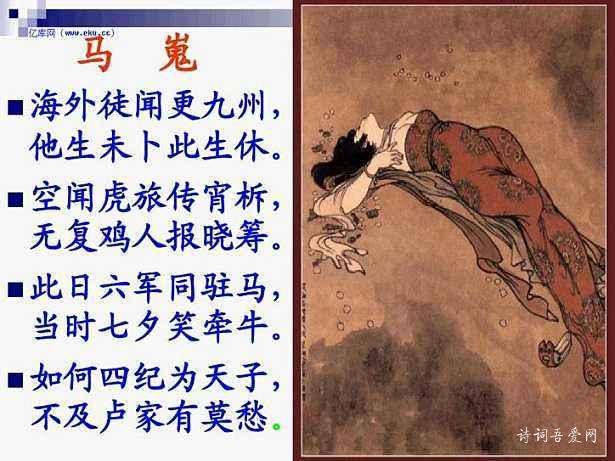 亿库网（www.eku.cc）
马 嵬
海外徒闻更九州，
他生未卜此生休。
空闻虎旅传宵柝，
无复鸡人报晓筹。
此日六军同驻马，
当时七夕笑牵牛。
如何四纪为天子，
不及卢家有莫愁。
诗词吾爱网